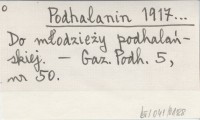 Podhalanin 1917...
Do młodzieży podhalań-
skiej. — Gaz. Podh. 5,
nr 50.